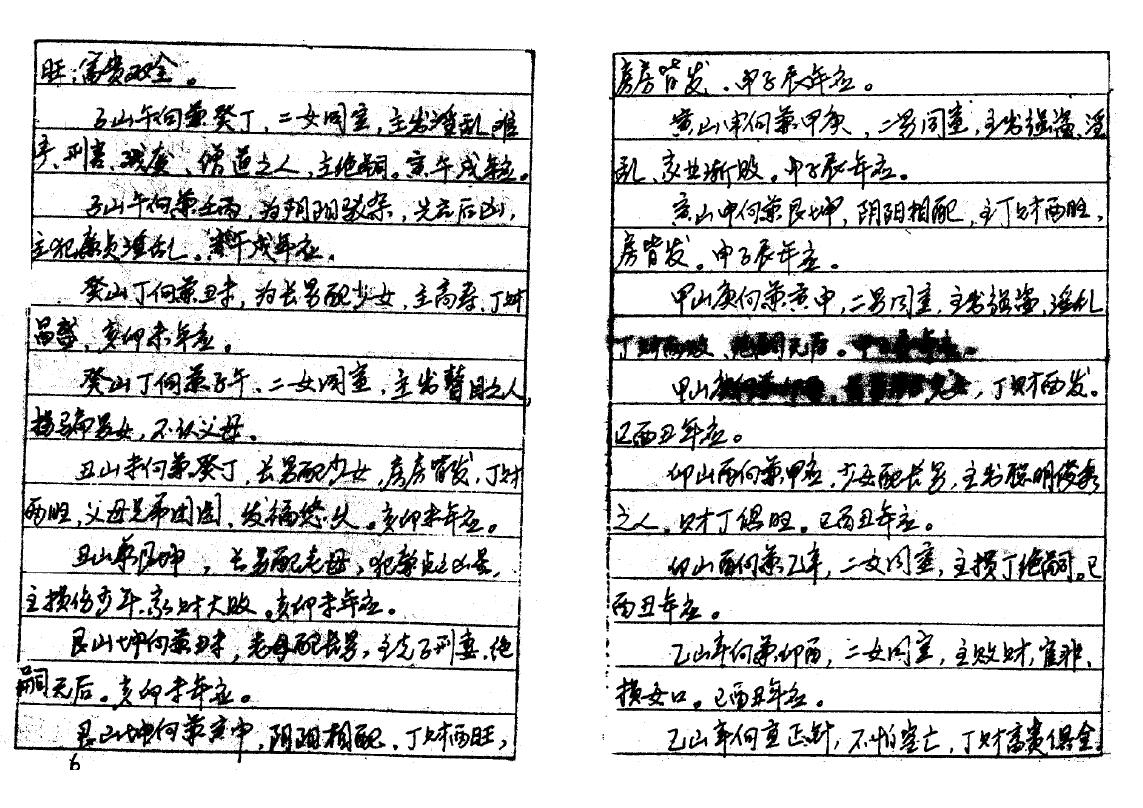 旺，富贵双全。
子山午向兼癸丁，二女同室，主出淫乱难
产、刑害、残废、僧道之人，主绝嗣。寅午戌年应。
子山午向兼壬丙，为阴阳驳杂，先吉后凶，
主犯廉贞淫乱。寅午戌年应。
癸山丁向兼丑未，为长男配少女，主高寿，丁财
昌盛，亥卯未年应。
癸山丁向兼子午，二女同室，主出瞽目之人，
损男女，不认父母。
丑山未向兼癸丁，长男配少女，房房皆发，丁财
两旺，父母兄弟团圆，发福悠久。亥卯未年应。
丑山兼艮坤，长男配老母，犯廉贞主凶暴，
主损伤少年，家财大败。亥卯未年应。
艮山坤向兼丑未，老母配长男，主克子刑妻，绝
嗣无后。亥卯未年应。
艮山坤向兼寅申，阴阳相配，丁财两旺，
6
房房皆发，申子辰年应。
寅山申向兼甲庚，二男同室，主出强盗、淫
乱，家业渐败。申子辰年应。
寅山申向兼艮坤，阴阳相配，主丁财两旺，
房皆发。申子辰年应。
甲山庚向兼寅申，二男同室，主出强盗，淫乱
丁财两败，绝嗣无后。
甲山庚向兼，丁财两发。
巳酉丑年应。
卯山酉向兼甲庚，少女配长男，主出聪明俊秀
之人，财丁俱旺。巳酉丑年应。
卯山酉向兼乙辛，二女同室，主损丁绝嗣。巳
酉丑年应。
乙山辛向兼卯酉，二女同室，主败财，官非，
损女口。巳酉丑年应。
乙山辛向宜正针，不怕空亡，丁财富贵俱全。